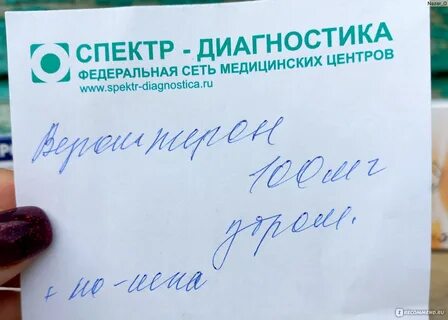 Nazar_O
СПЕКТР - ДИАГНОСТИКА
ФЕДЕРАЛЬНАЯ СЕТЬ МЕДИЦИНСКИХ ЦЕНТРОВ
www.spektr-diagnostica.ru
Верошпирон
100мг
утром.
+ но-шпа
IRECOMMEND.RU